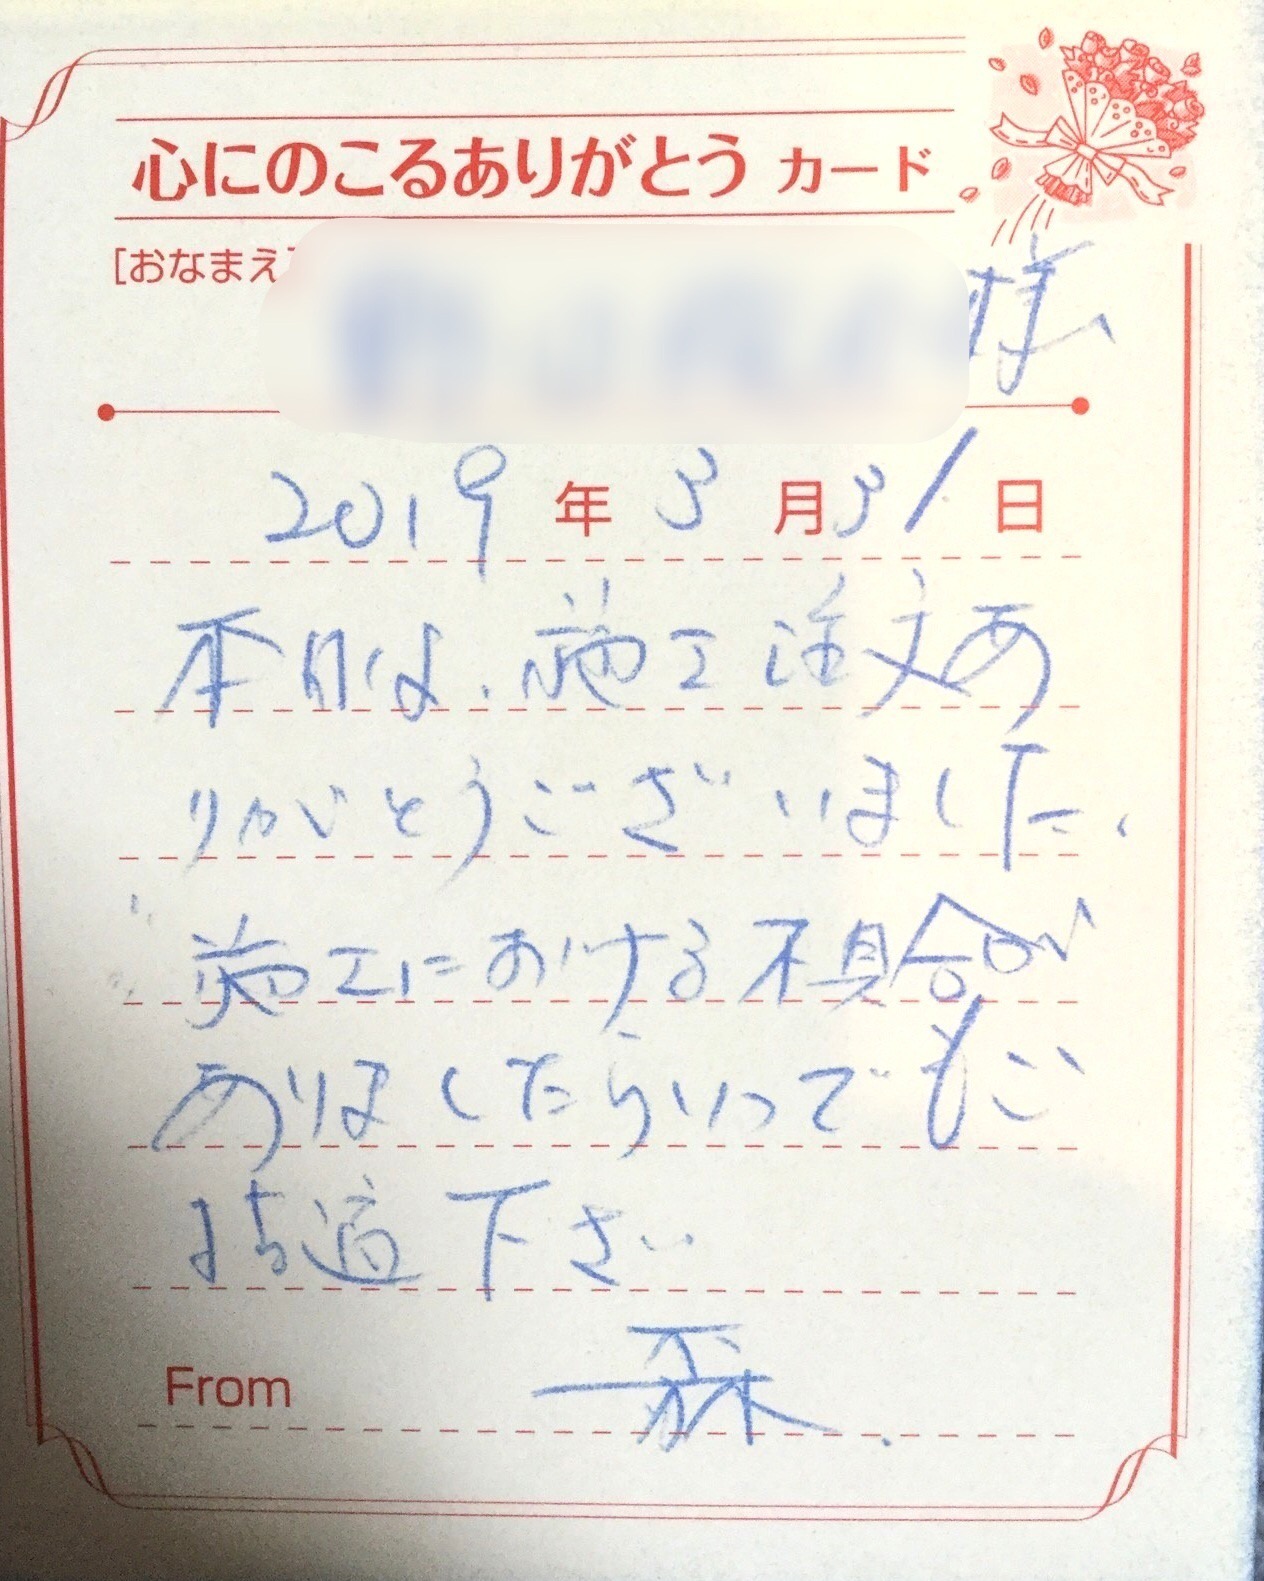 心にのこるありがとう カード
[おなまえ]
様
2019年3月31日
本日は、施工注文あ
りがとうございました、
施工における不具合が
ありましたらいつでもご
指適下さい
From 森